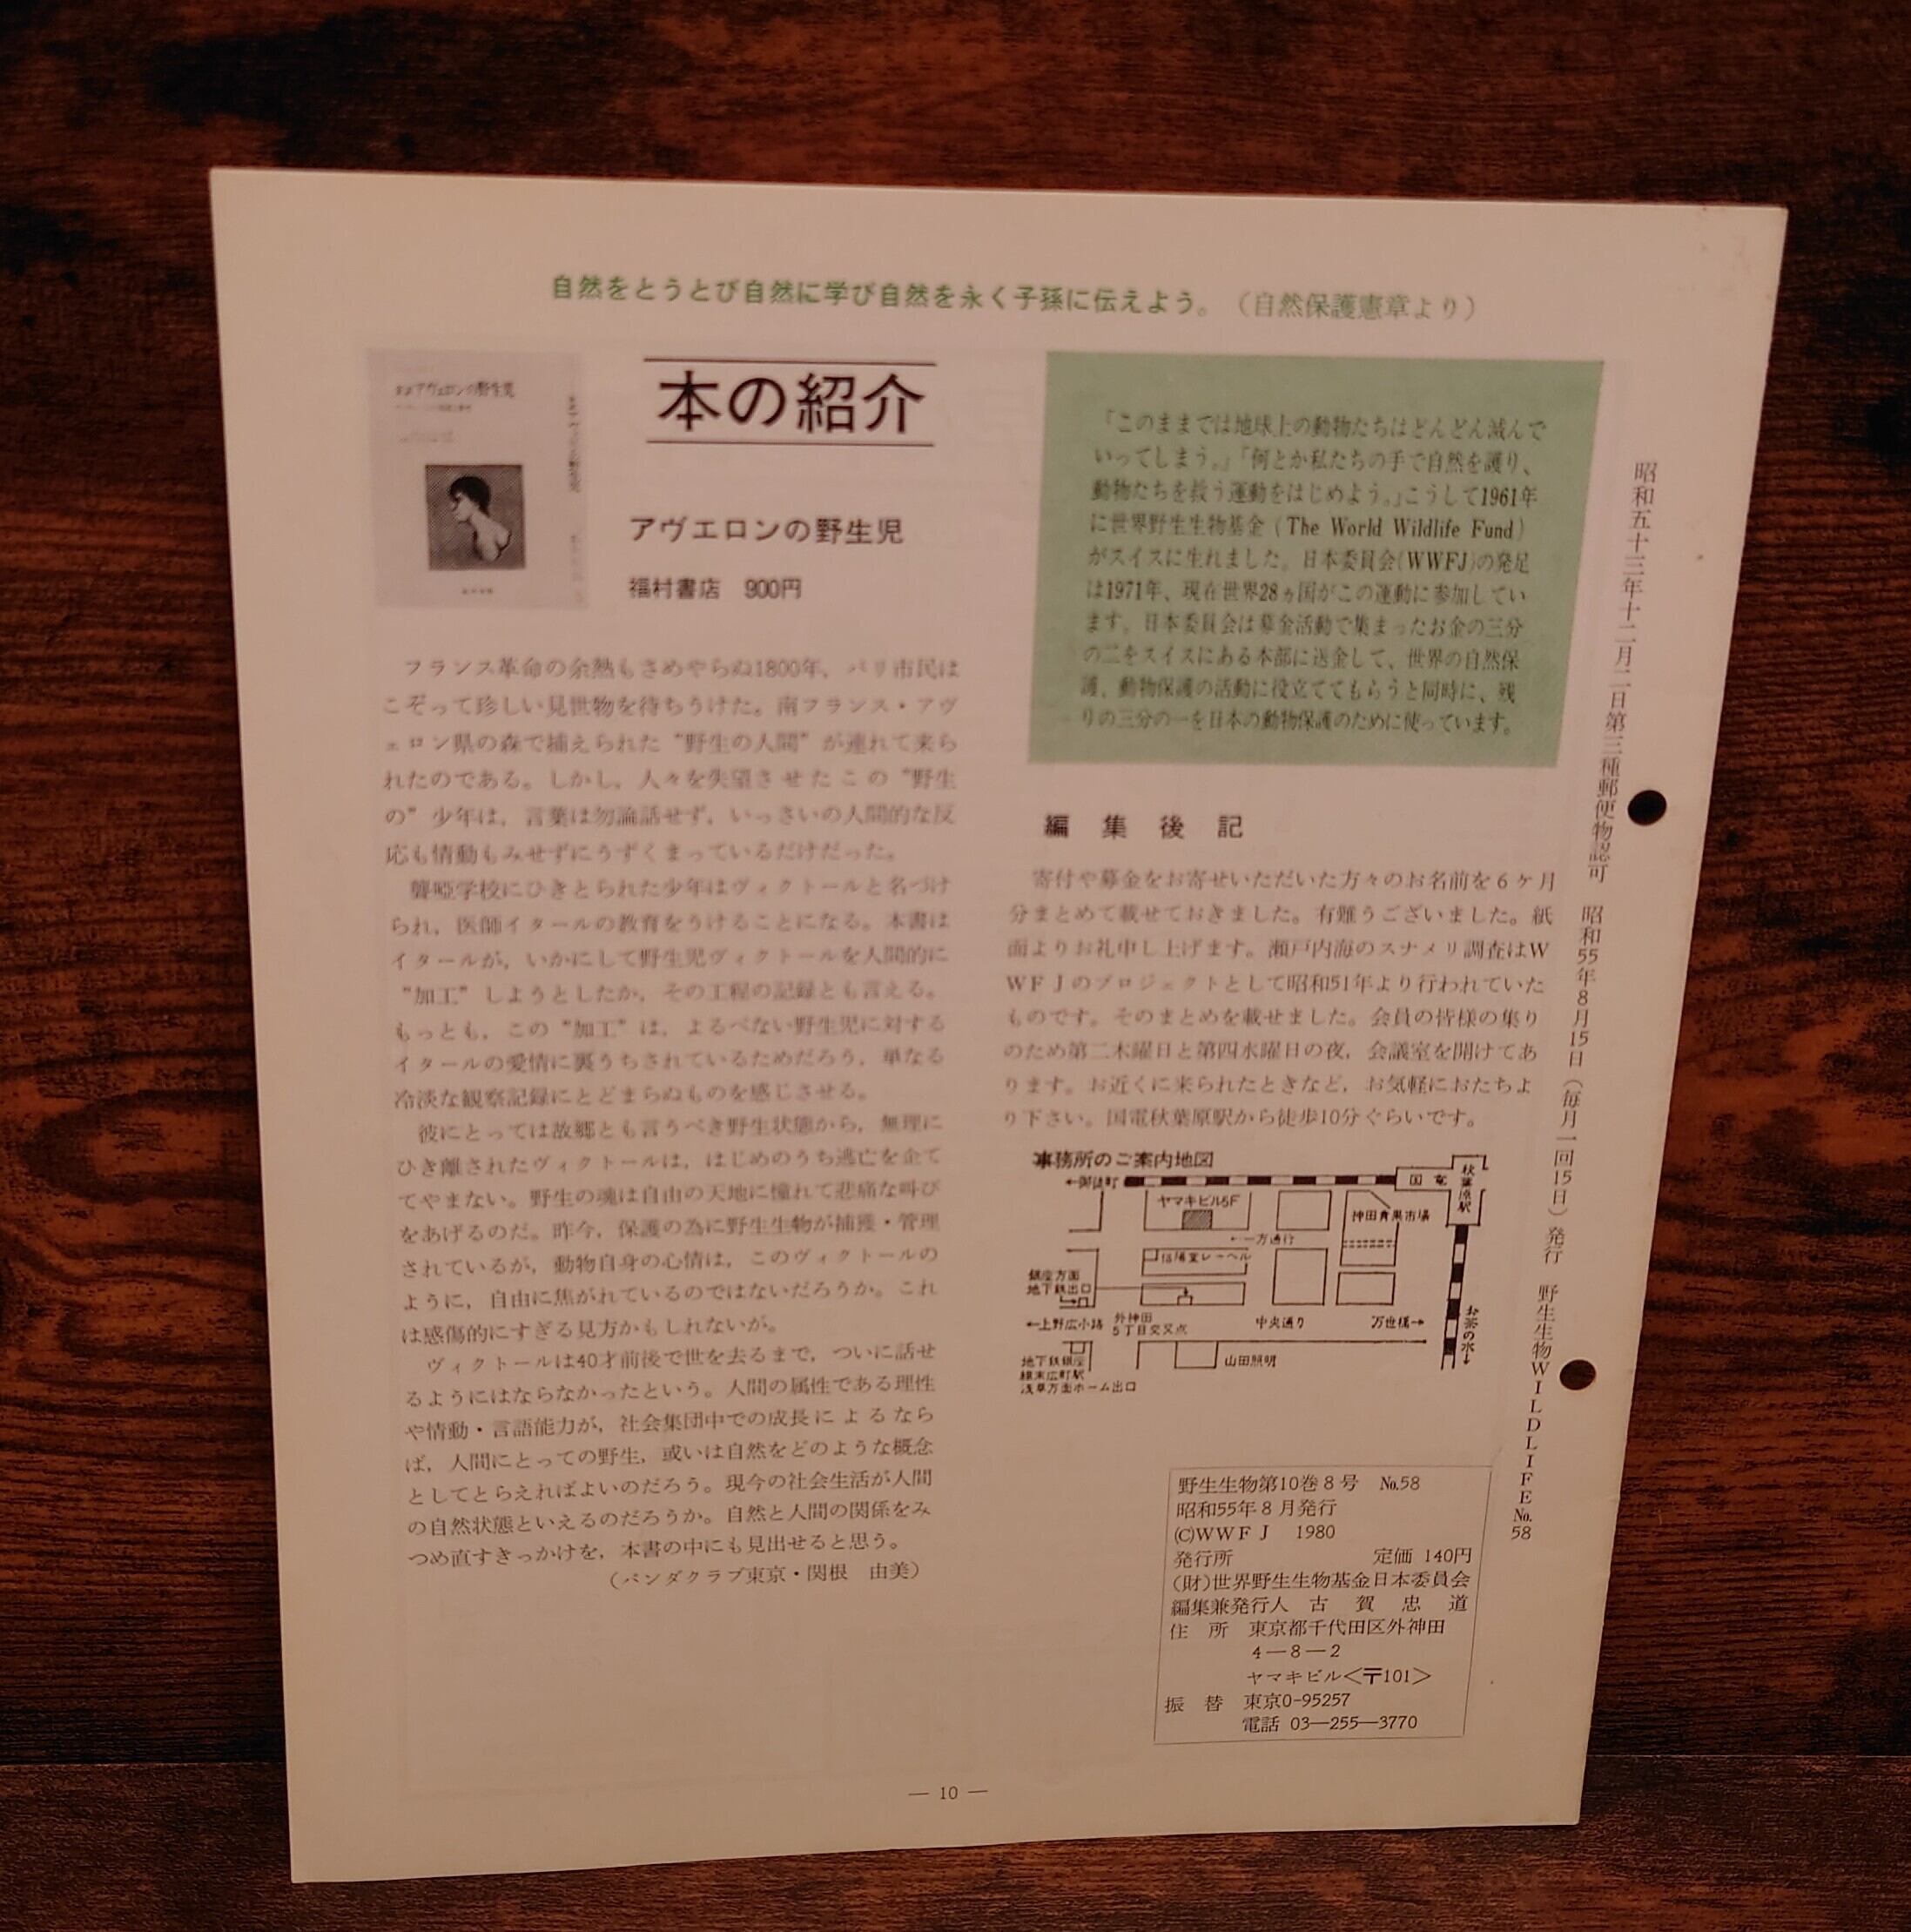 自然をとうとび自然に学び自然を永く子孫に伝えよう。（自然保護憲章より）
アヴェロンの野生児
本の紹介
アヴエロンの野生児
福村書店　900円
フランス革命の余熱もさめやらぬ1800年，パリ市民は
こぞって珍しい見世物を待ちうけた。南フランス・アヴ
ェロン県の森で捕えられた“野生の人間”が連れて来ら
れたのである。しかし，人々を失望させたこの“野生
の”少年は，言葉は勿論話せず，いっさいの人間的な反
応も情動もみせずにうずくまっているだけだった。
聾啞学校にひきとられた少年はヴィクトールと名づけ
られ，医師イタールの教育をうけることになる。本書は
イタールが，いかにして野生児ヴィクトールを人間的に
“加工”しようとしたか，その工程の記録とも言える。
もっとも，この“加工”は，よるべない野生児に対する
イタールの愛情に裏うちされているためだろう，単なる
冷淡な観察記録にとどまらぬものを感じさせる。
彼にとっては故郷とも言うべき野生状態から，無理に
ひき離されたヴィクトールは，はじめのうち逃亡を企て
てやまない。野生の魂は自由の天地に憧れて悲痛な叫び
をあげるのだ。昨今，保護の為に野生生物が捕獲・管理
されているが，動物自身の心情は，このヴィクトールの
ように，自由に焦がれているのではないだろうか。これ
は感傷的にすぎる見方かもしれないが。
ヴィクトールは40才前後で世を去るまで，ついに話せ
るようにはならなかったという。人間の属性である理性
や情動・言語能力が，社会集団中での成長によるなら
ば，人間にとっての野生，或いは自然をどのような概念
としてとらえればよいのだろう。現今の社会生活が人間
の自然状態といえるのだろうか。自然と人間の関係をみ
つめ直すきっかけを，本書の中にも見出せると思う。
（パンダクラブ東京・関根　由美）
「このままでは地球上の動物たちはどんどん滅んで
いってしまう。」「何とか私たちの手で自然を護り、
動物たちを救う運動をはじめよう。」こうして1961年
に世界野生生物基金（The World Wildlife Fund）
がスイスに生れました。日本委員会(WWFJ)の発足
は1971年、現在世界28ヵ国がこの運動に参加してい
ます。日本委員会は募金活動で集まったお金の三分
の二をスイスにある本部に送金して、世界の自然保
護、動物保護の活動に役立ててもらうと同時に、残
りの三分の一を日本の動物保護のために使っています。
編集後記
寄付や募金をお寄せいただいた方々のお名前を６ケ月
分まとめて載せておきました。有難うございました。紙
面よりお礼申し上げます。瀬戸内海のスナメリ調査はＷ
ＷＦＪのプロジェクトとして昭和51年より行われていた
ものです。そのまとめを載せました。会員の皆様の集り
のため第二木曜日と第四水曜日の夜，会議室を開けてあ
ります。お近くに来られたときなど，お気軽におたちよ
り下さい。国電秋葉原駅から徒歩10分ぐらいです。
事務所のご案内地図
←御徒町
国電
秋葉原駅
ヤマキビル5F
神田青果市場
←一方通行
銀座方面
地下鉄出口
←上野広小路
外神田
5丁目交叉点
中央通り
万世橋→
お茶の水→
地下鉄銀座
線末広町駅
浅草方面ホーム出口
山田照明
野生生物第10巻８号　No.58
昭和55年８月発行
©ＷＷＦＪ　1980
発行所　定価 140円
(財)世界野生生物基金日本委員会
編集兼発行人　古賀忠道
住　所　東京都千代田区外神田
4―8―2
ヤマキビル＜〒101＞
振　替　東京0-95257
電話 03―255―3770
昭和五十三年十二月二日第三種郵便物認可　昭和55年8月15日（毎月一回15日）発行　野生生物ＷＩＬＤＬＩＦＥNo.58
― 10 ―